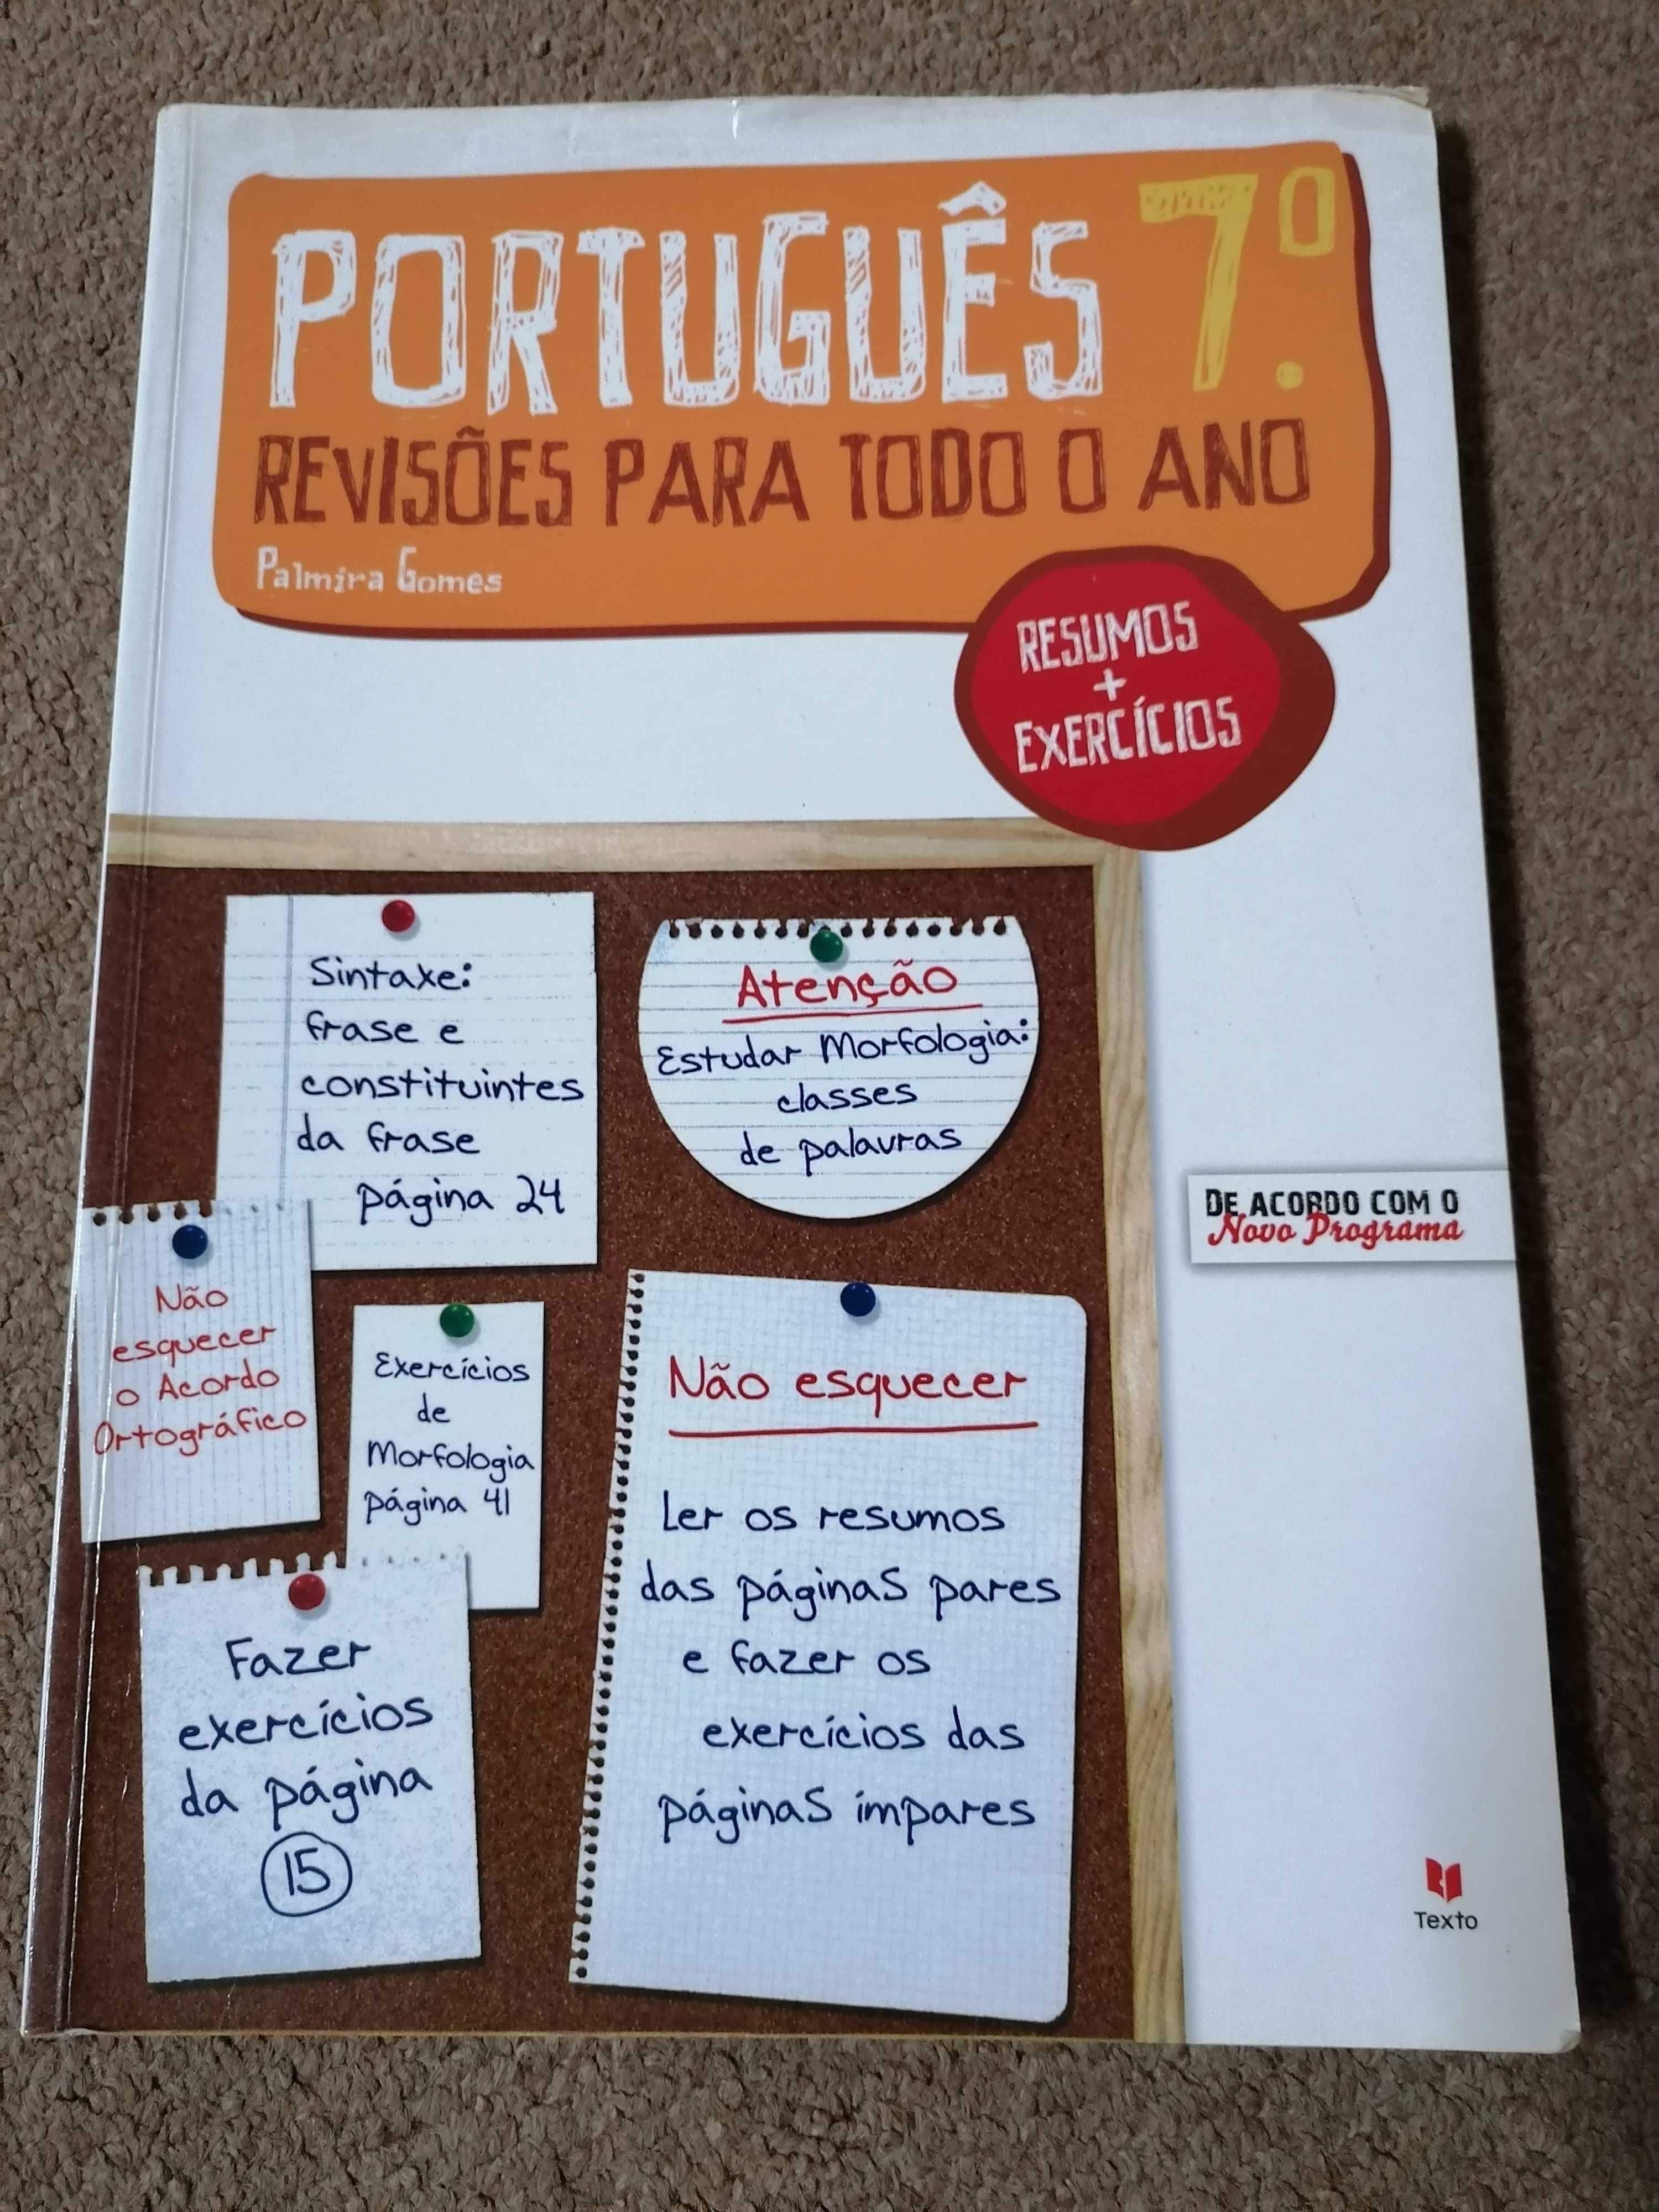 PORTUGUÊS 7.º
REVISÕES PARA TODO O ANO
Palmira Gomes
RESUMOS
+
EXERCÍCIOS
Sintaxe:
frase e
constituintes
da frase
página 24
Atenção
Estudar Morfologia:
classes
de palavras
DE ACORDO COM O
Novo Programa
Não
esquecer
o Acordo
Ortográfico
Exercícios
de
Morfologia
página 41
Não esquecer
Ler os resumos
das páginas pares
e fazer os
exercícios das
páginas ímpares
Fazer
exercícios
da página
15
Texto